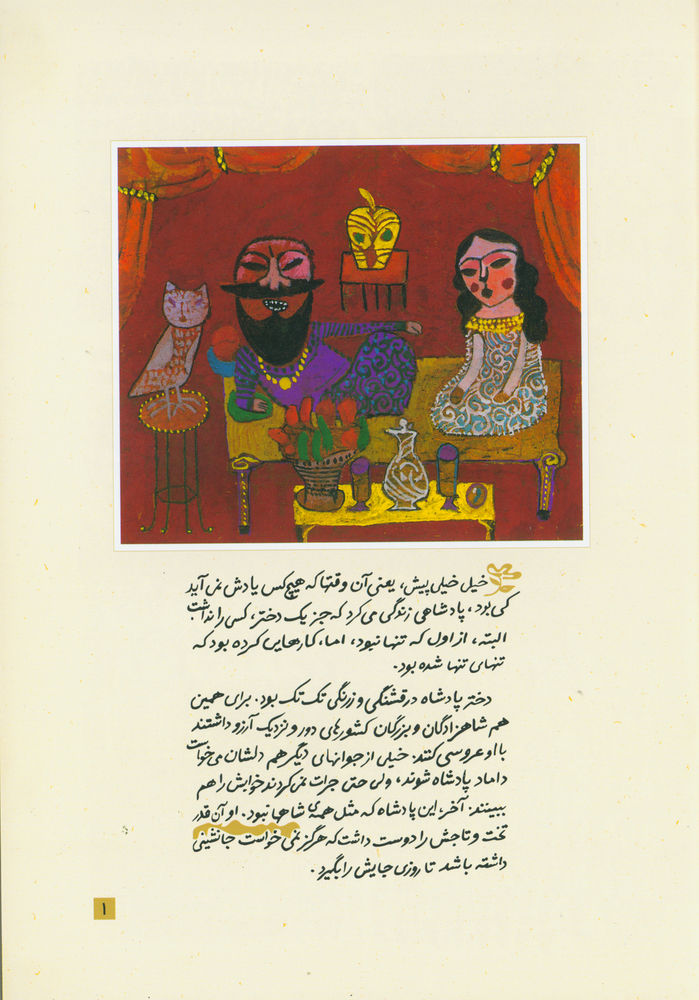 خیلی خیلی پیش، یعنی آن وقتها که هیچ کس یادش نمی آید
کی بود، پادشاهی زندگی می کرد که جز یک دختر، کسی را نداشت
البته، از اول که تنها نبود، اما، کارهایی کرده بود که
تنهای تنها شده بود.
دختر پادشاه در قشنگی و زرنگی تک تک بود. برای همین
هم شاهزادگان و بزرگان کشورهای دور و نزدیک آرزو داشتند
با او عروسی کنند. خیلی از جوانهای دیگر هم دلشان می خواست
داماد پادشاه شوند، ولی حتی جرات نمی کردند خوابش را هم
ببینند. آخر، این پادشاه که مثل همه ی شاهها نبود. او آن قدر
تخت و تاجش را دوست داشت که هرگز نمی خواست جانشینی
داشته باشد تا روزی جایش را بگیرد.
۱